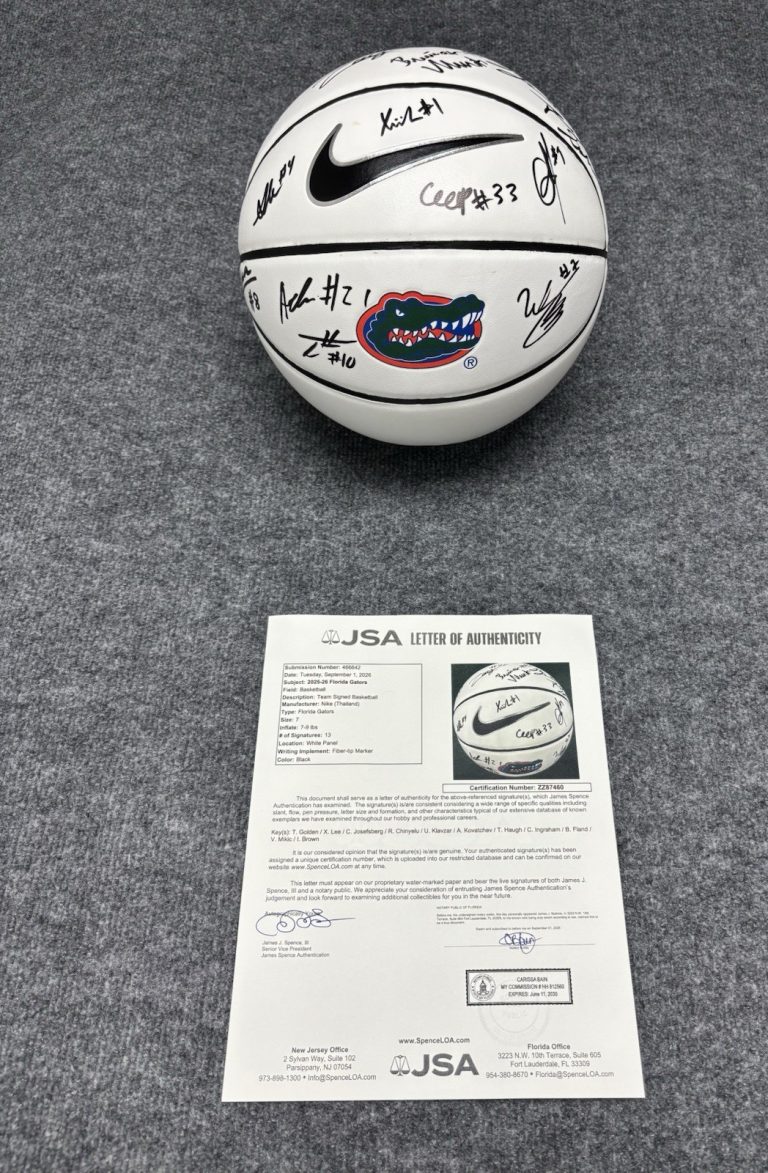 Xiii #1
CeeP #33
#4
#8
#21
#10
#2
®
JSA LETTER OF AUTHENTICITY
Submission Number: 466642
Date: Tuesday, September 1, 2026
Subject: 2025-26 Florida Gators
Field: Basketball
Description: Team Signed Basketball
Manufacturer: Nike (Thailand)
Type: Florida Gators
Size: 7
Inflate: 7-9 lbs
# of Signatures: 13
Location: White Panel
Writing Implement: Fiber-tip Marker
Color: Black
Certification Number: ZZ87460
This document shall serve as a letter of authenticity for the above-referenced signature(s), which James Spence
Authentication has examined. The signature(s) is/are consistent considering a wide range of specific qualities including
slant, flow, pen pressure, letter size and formation, and other characteristics typical of our extensive database of known
exemplars we have examined throughout our hobby and professional careers.
Key(s): T. Golden / X. Lee / C. Josefsberg / R. Chinyelu / U. Klavzar / A. Kovatchev / T. Haugh / C. Ingraham / B. Fland /
V. Mikic / I. Brown
It is our considered opinion that the signature(s) is/are genuine. Your authenticated signature(s) has been
assigned a unique certification number, which is uploaded into our restricted database and can be confirmed on our
website www.SpenceLOA.com at any time.
This letter must appear on our proprietary water-marked paper and bear the live signatures of both James J.
Spence, III and a notary public. We appreciate your consideration of entrusting James Spence Authentication's
judgement and look forward to examining additional collectibles for you in the near future.
NOTARY PUBLIC OF FLORIDA
James J. Spence, III
Senior Vice President
James Spence Authentication
CARISSA BAIN
MY COMMISSION # HH 912560
EXPIRES: June 11, 2030
www.SpenceLOA.com
New Jersey Office
2 Sylvan Way, Suite 102
Parsippany, NJ 07054
973-898-1300 • Info@SpenceLOA.com
JSA
Florida Office
3223 N.W. 10th Terrace, Suite 605
Fort Lauderdale, FL 33309
954-380-8670 • Florida@SpenceLOA.com